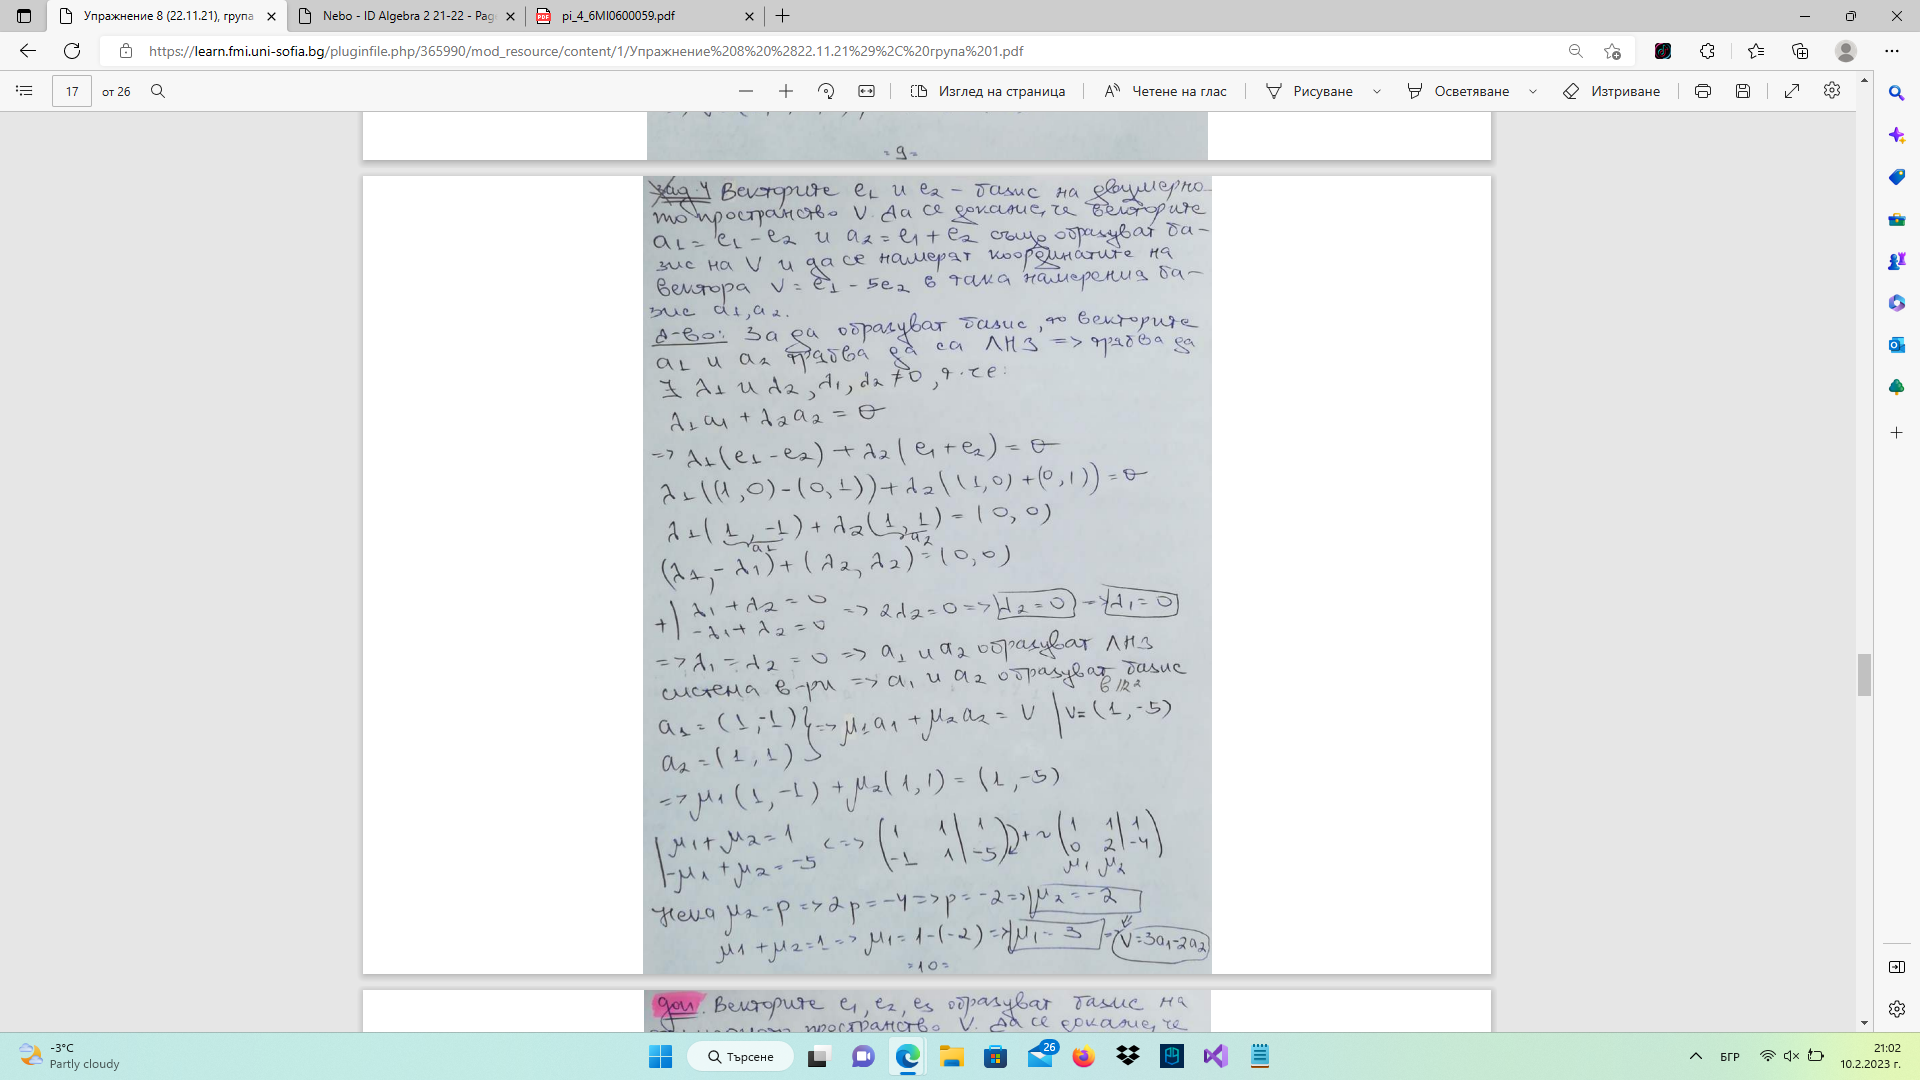 Упражнение 8 (22.11.21), група
Nebo - ID Algebra 2 21-22 - Pag
pi_4_6MI0600059.pdf
https://learn.fmi.uni-sofia.bg/pluginfile.php/365990/mod_resource/content/1/Упражнение%208%20%2822.11.21%29%2C%20група%201.pdf
17 от 26
Изглед на страница
Четене на глас
Рисуване
Осветяване
Изтриване
= 9 =
Зад. 4 Векторите e1 и e2 - базис на двумерно-
то пространство V. Да се докаже, че векторите
a1 = e1 - e2 и a2 = e1 + e2 също образуват ба-
зис на V и да се намерят координатите на
вектора v = e1 - 5e2 в така намерения ба-
зис a1, a2.
Д-во: За да образуват базис, то векторите
a1 и a2 трябва да са ЛНЗ => трябва да
∃ λ1 и λ2, λ1, λ2 ≠ 0, т.че:
λ1a1 + λ2a2 = θ
=> λ1(e1 - e2) + λ2(e1 + e2) = θ
λ1((1,0) - (0,1)) + λ2((1,0) + (0,1)) = θ
λ1(1, -1) + λ2(1, 1) = (0, 0)
a1 a2
(λ1, -λ1) + (λ2, λ2) = (0, 0)
+| λ1 + λ2 = 0 => 2λ2 = 0 => λ2 = 0 => λ1 = 0
-λ1 + λ2 = 0
=> λ1 = λ2 = 0 => a1 и a2 образуват ЛНЗ
система в-ри => a1 и a2 образуват базис
в ℝ²
a1 = (1, -1) } => μ1a1 + μ2a2 = v | v = (1, -5)
a2 = (1, 1)
=> μ1(1, -1) + μ2(1, 1) = (1, -5)
| μ1 + μ2 = 1 <=> ( 1 1 | 1 ) + ~ ( 1 1 | 1 )
| -μ1 + μ2 = -5 ( -1 1 | -5 ) ( 0 2 | -4 )
μ1 μ2
Нека μ2 = p => 2p = -4 => p = -2 => μ2 = -2
μ1 + μ2 = 1 => μ1 = 1 - (-2) => μ1 = 3 => v = 3a1 - 2a2
= 10 =
доп. Векторите e1, e2, e3 образуват базис на
пространство V. Да се докаже, че
-3°C
Partly cloudy
Търсене
26
БГР
21:02
10.2.2023 г.